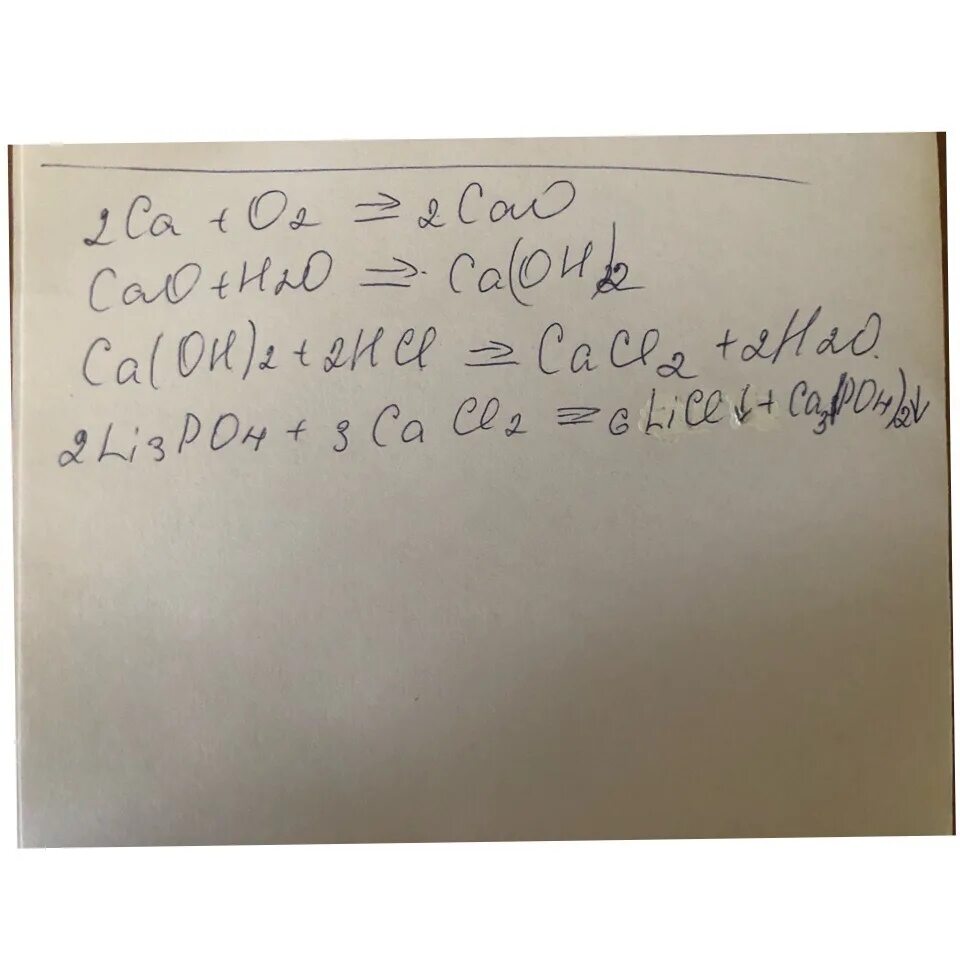 2Ca + O2 => 2CaO
CaO + H2O => Ca(OH)2
Ca(OH)2 + 2HCl => CaCl2 + 2H2O.
2Li3PO4 + 3CaCl2 => 6LiCl↓ + Ca3(PO4)2↓